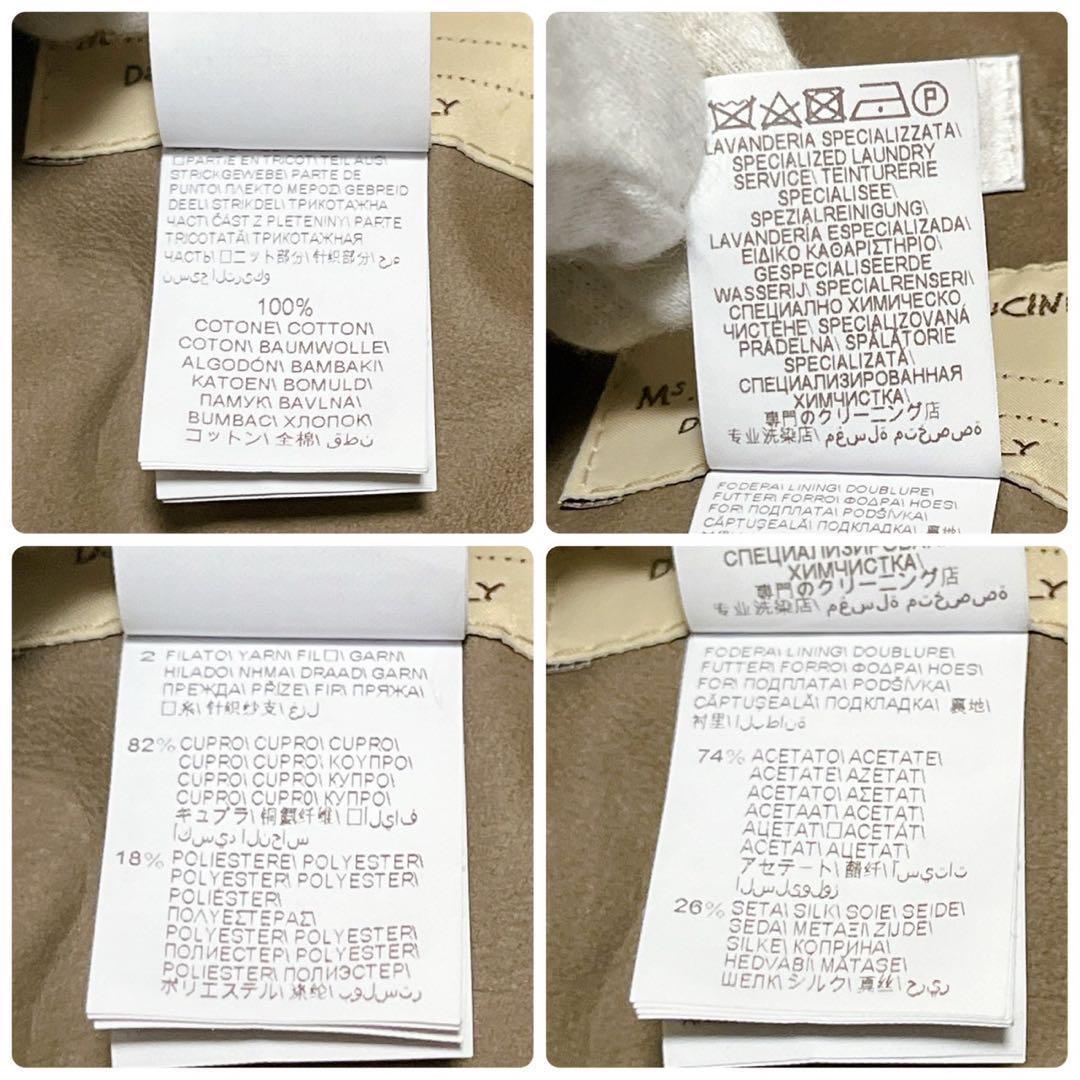 □PARTIE EN TRICOT\ TEIL AUS\
STRICKGEWEBE\ PARTE DE
PUNTO\ ΠΛΕΚΤΟ ΜΕΡΟΣ\ GEBREID
DEEL\ STRIKDEL\ ТРИКОТАЖНА
ЧАСТ\ ČÁST Z PLETENINY\ PARTE
TRICOTATĂ\ ТРИКОТАЖНАЯ
ЧАСТЬ\ □ニット部分\ 针织部分\ جزء
نسيج التريكو
100%
COTONE\ COTTON\
COTON\ BAUMWOLLE\
ALGODÓN\ ΒΑΜΒΑΚΙ\
KATOEN\ BOMULD\
ПАМУК\ BAVLNA\
BUMBAC\ ХЛОПОК\
コットン\ 全棉\ قطن
LY
P
LAVANDERIA SPECIALIZZATA\
SPECIALIZED LAUNDRY
SERVICE\ TEINTURERIE
SPECIALISEE\
SPEZIALREINIGUNG\
LAVANDERÍA ESPECIALIZADA\
ΕΙΔΙΚΟ ΚΑΘΑΡΙΣΤΗΡΙΟ\
GESPECIALISEERDE
WASSERIJ\ SPECIALRENSERI\
СПЕЦИАЛНО ХИМИЧЕСКО
ЧИСТЕНЕ\ SPECIALIZOVANÁ
PRÁDELNA\ SPĂLĂTORIE
SPECIALIZATĂ\
СПЕЦИАЛИЗИРОВАННАЯ
ХИМЧИСТКА\
専門のクリーニング店
专业洗染店\ مغسلة متخصصة
FODERA\ LINING\ DOUBLURE\
FUTTER\ FORRO\ ΦΟΔΡΑ\ HOES\
FOR\ ПОДПЛАТА\ PODŠÍVKA\
CĂPTUŞEALĂ\ ПОДКЛАДКА\ 裏地\
Ms.
LY
2 FILATO\ YARN\ FIL□\ GARN\
HILADO\ ΝΗΜΑ\ DRAAD\ GARN\
ПРЕЖДА\ PŘÍZE\ FIR\ ПРЯЖА\
□糸\ 针织纱支\ غزل
82% CUPRO\ CUPRO\ CUPRO\
CUPRO\ CUPRO\ ΚΟΥΠΡΟ\
CUPRO\ CUPRO\ КУПРО\
CUPRO\ CUPRO\ КУПРО\
キュプラ\ 铜氨纤维\ □ألياف
أكسيد النحاس
18% POLIESTERE\ POLYESTER\
POLYESTER\ POLYESTER\
POLIESTER\
ΠΟΛΥΕΣΤΕΡΑΣ\
POLYESTER\ POLYESTER\
ПОЛИЕСТЕР\ POLYESTER\
POLIESTER\ ПОЛИЭСТЕР\
ポリエステル\ 涤纶\ بولستر
LY
СПЕЦИАЛИЗИРОВАННАЯ
ХИМЧИСТКА\
専門のクリーニング店
专业洗染店\ مغسلة متخصصة
FODERA\ LINING\ DOUBLURE\
FUTTER\ FORRO\ ΦΟΔΡΑ\ HOES\
FOR\ ПОДПЛАТА\ PODŠÍVKA\
CĂPTUŞEALĂ\ ПОДКЛАДКА\ 裏地\
衬里\ البطانة
74% ACETATO\ ACETATE\
ACETATE\ AZETAT\
ACETATO\ ΑΣΕΤΑΤ\
ACETAAT\ ACETAT\
АЦЕТАТ\□ACETÁT\
ACETAT\ АЦЕТАТ\
アセテート\ 醋纤\ اسيتات
السليولوز
26% SETA\ SILK\ SOIE\ SEIDE\
SEDA\ ΜΕΤΑΞΙ\ ZIJDE\
SILKE\ КОПРИНА\
HEDVÁBÍ\ MĂTASE\
ШЕЛК\ シルク\ 真丝\ حرير
LY